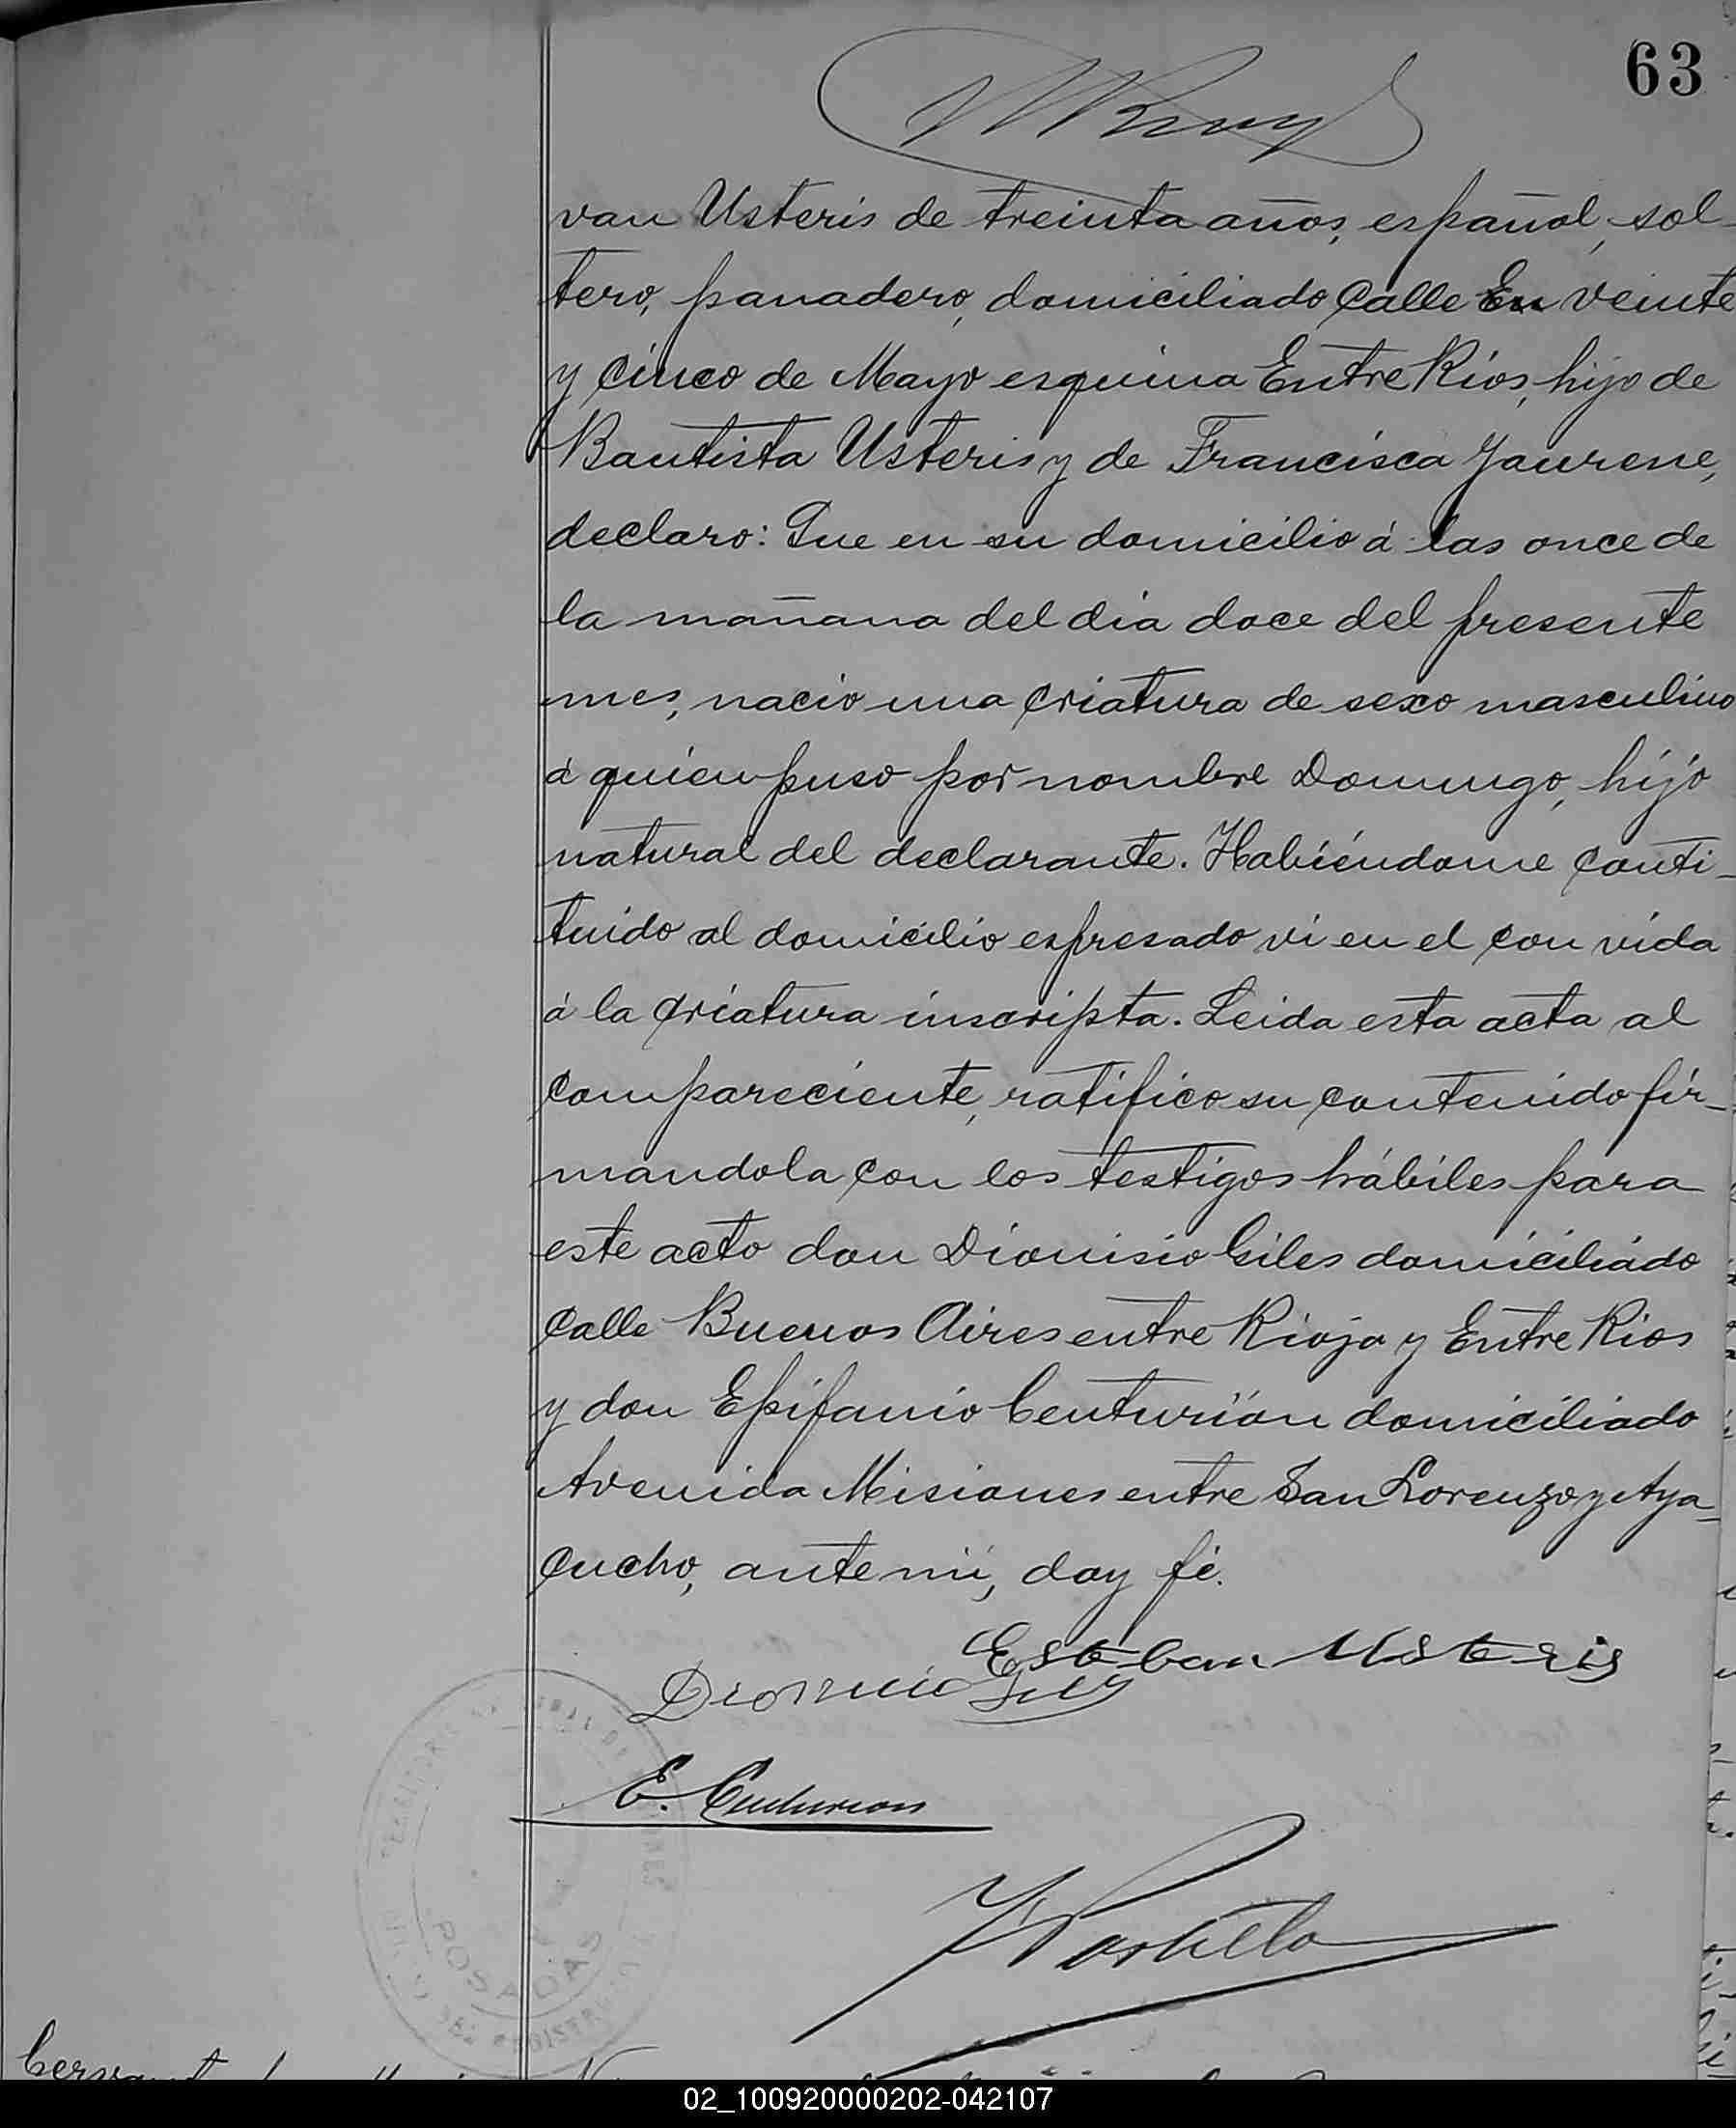 63
van Usteris de treinta años, español, sol-
tero, panadero, domiciliado calle En veinte
y cinco de Mayo esquina Entre Rios, hijo de
Bautista Usteris y de Francisca Yaurene,
declaro: Que en su domicilio á las once de
la mañana del dia doce del presente
mes, nacio una criatura de sexo masculino
á quien puso por nombre Domingo, hijo
natural del declarante. Habiéndome conti-
tuido al domicilio espresado vi en el con vida
á la criatura inscripta. Leida esta acta al
compareciente, ratifico su contenido fir-
mandola con los testigos hábiles para
este acto don Dionisio Giles domiciliado
calle Buenos Aires entre Rioja y Entre Rios
y don Epifanio Centurión domiciliado
Avenida Misiones entre San Lorenzo y Aya-
cucho, ante mi, doy fé.
Esteban Usteris
Dionicio Giles
E. Centurion
POSADAS
02_100920000202-042107